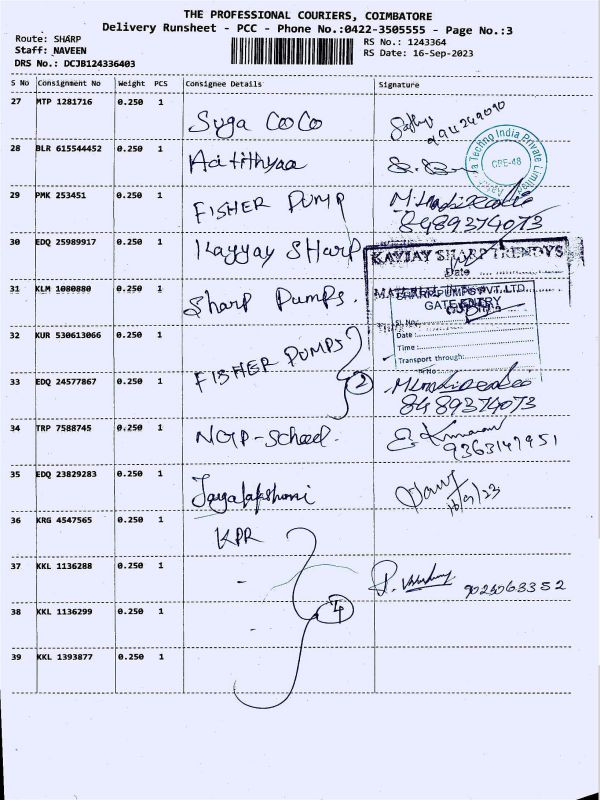 THE PROFESSIONAL COURIERS, COIMBATORE
Delivery Runsheet - PCC - Phone No.:0422-3505555 - Page No.:3
Route: SHARP
Staff: NAVEEN
DRS No.: DCJB124336403
RS No.: 1243364
RS Date: 16-Sep-2023
S No Consignment No Weight PCS Consignee Details Signature
27 MTP 1281716 0.250 1
Suga CoCo
28 BLR 615544452 0.250 1
Techno India Private Limited
CPE-48
29 PMK 253451 0.250 1
FISHER PUMP
8489374073
30 EDQ 25989917 0.250 1
Kayyay SHarp
KAYJAY SHARP TRENDYS
Date
31 KLM 1080880 0.250 1
Sharp Pumps.
SHARP PUMPS PVT. LTD.
GATE ENTRY
Sl.No:
Date :
Time :
Transport through:
32 KUR 530613066 0.250 1
FISHER PUMPS
33 EDQ 24577867 0.250 1
2
8489374073
34 TRP 7588745 0.250 1
NGP-School.
9363147951
35 EDQ 23829283 0.250 1
16/9/23
36 KRG 4547565 0.250 1
KPR
37 KKL 1136288 0.250 1
-
38 KKL 1136299 0.250 1
4
-
39 KKL 1393877 0.250 1